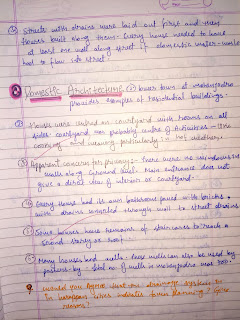 Streets with drains were laid out first and then
houses built along them. Every house needed to have
at least one wall along street if domestic waste-water
had to flow into street.
Domestic Architecture
lower town at mohenjodaro
provides examples of residential buildings.
Houses were centred on courtyard with rooms on all
sides. courtyard was probably centre of activities - like
cooking and weaving particularly in hot weather.
Apparent concerns for privacy:- There were no windows in
walls along Ground level. Main entrance does not
give a direct view of interior or courtyard.
Every House had its own bathroom paved with bricks
with drains connected through wall to street drains
Some houses have remains of staircases to reach a
second storey or roof.
Many houses had wells. these wells can also be used by
passers-by. total no. of wells in mohenjodaro was 700.
would you agree that this drainage system in
in harappan cities indicate town planning? Give
reasons?